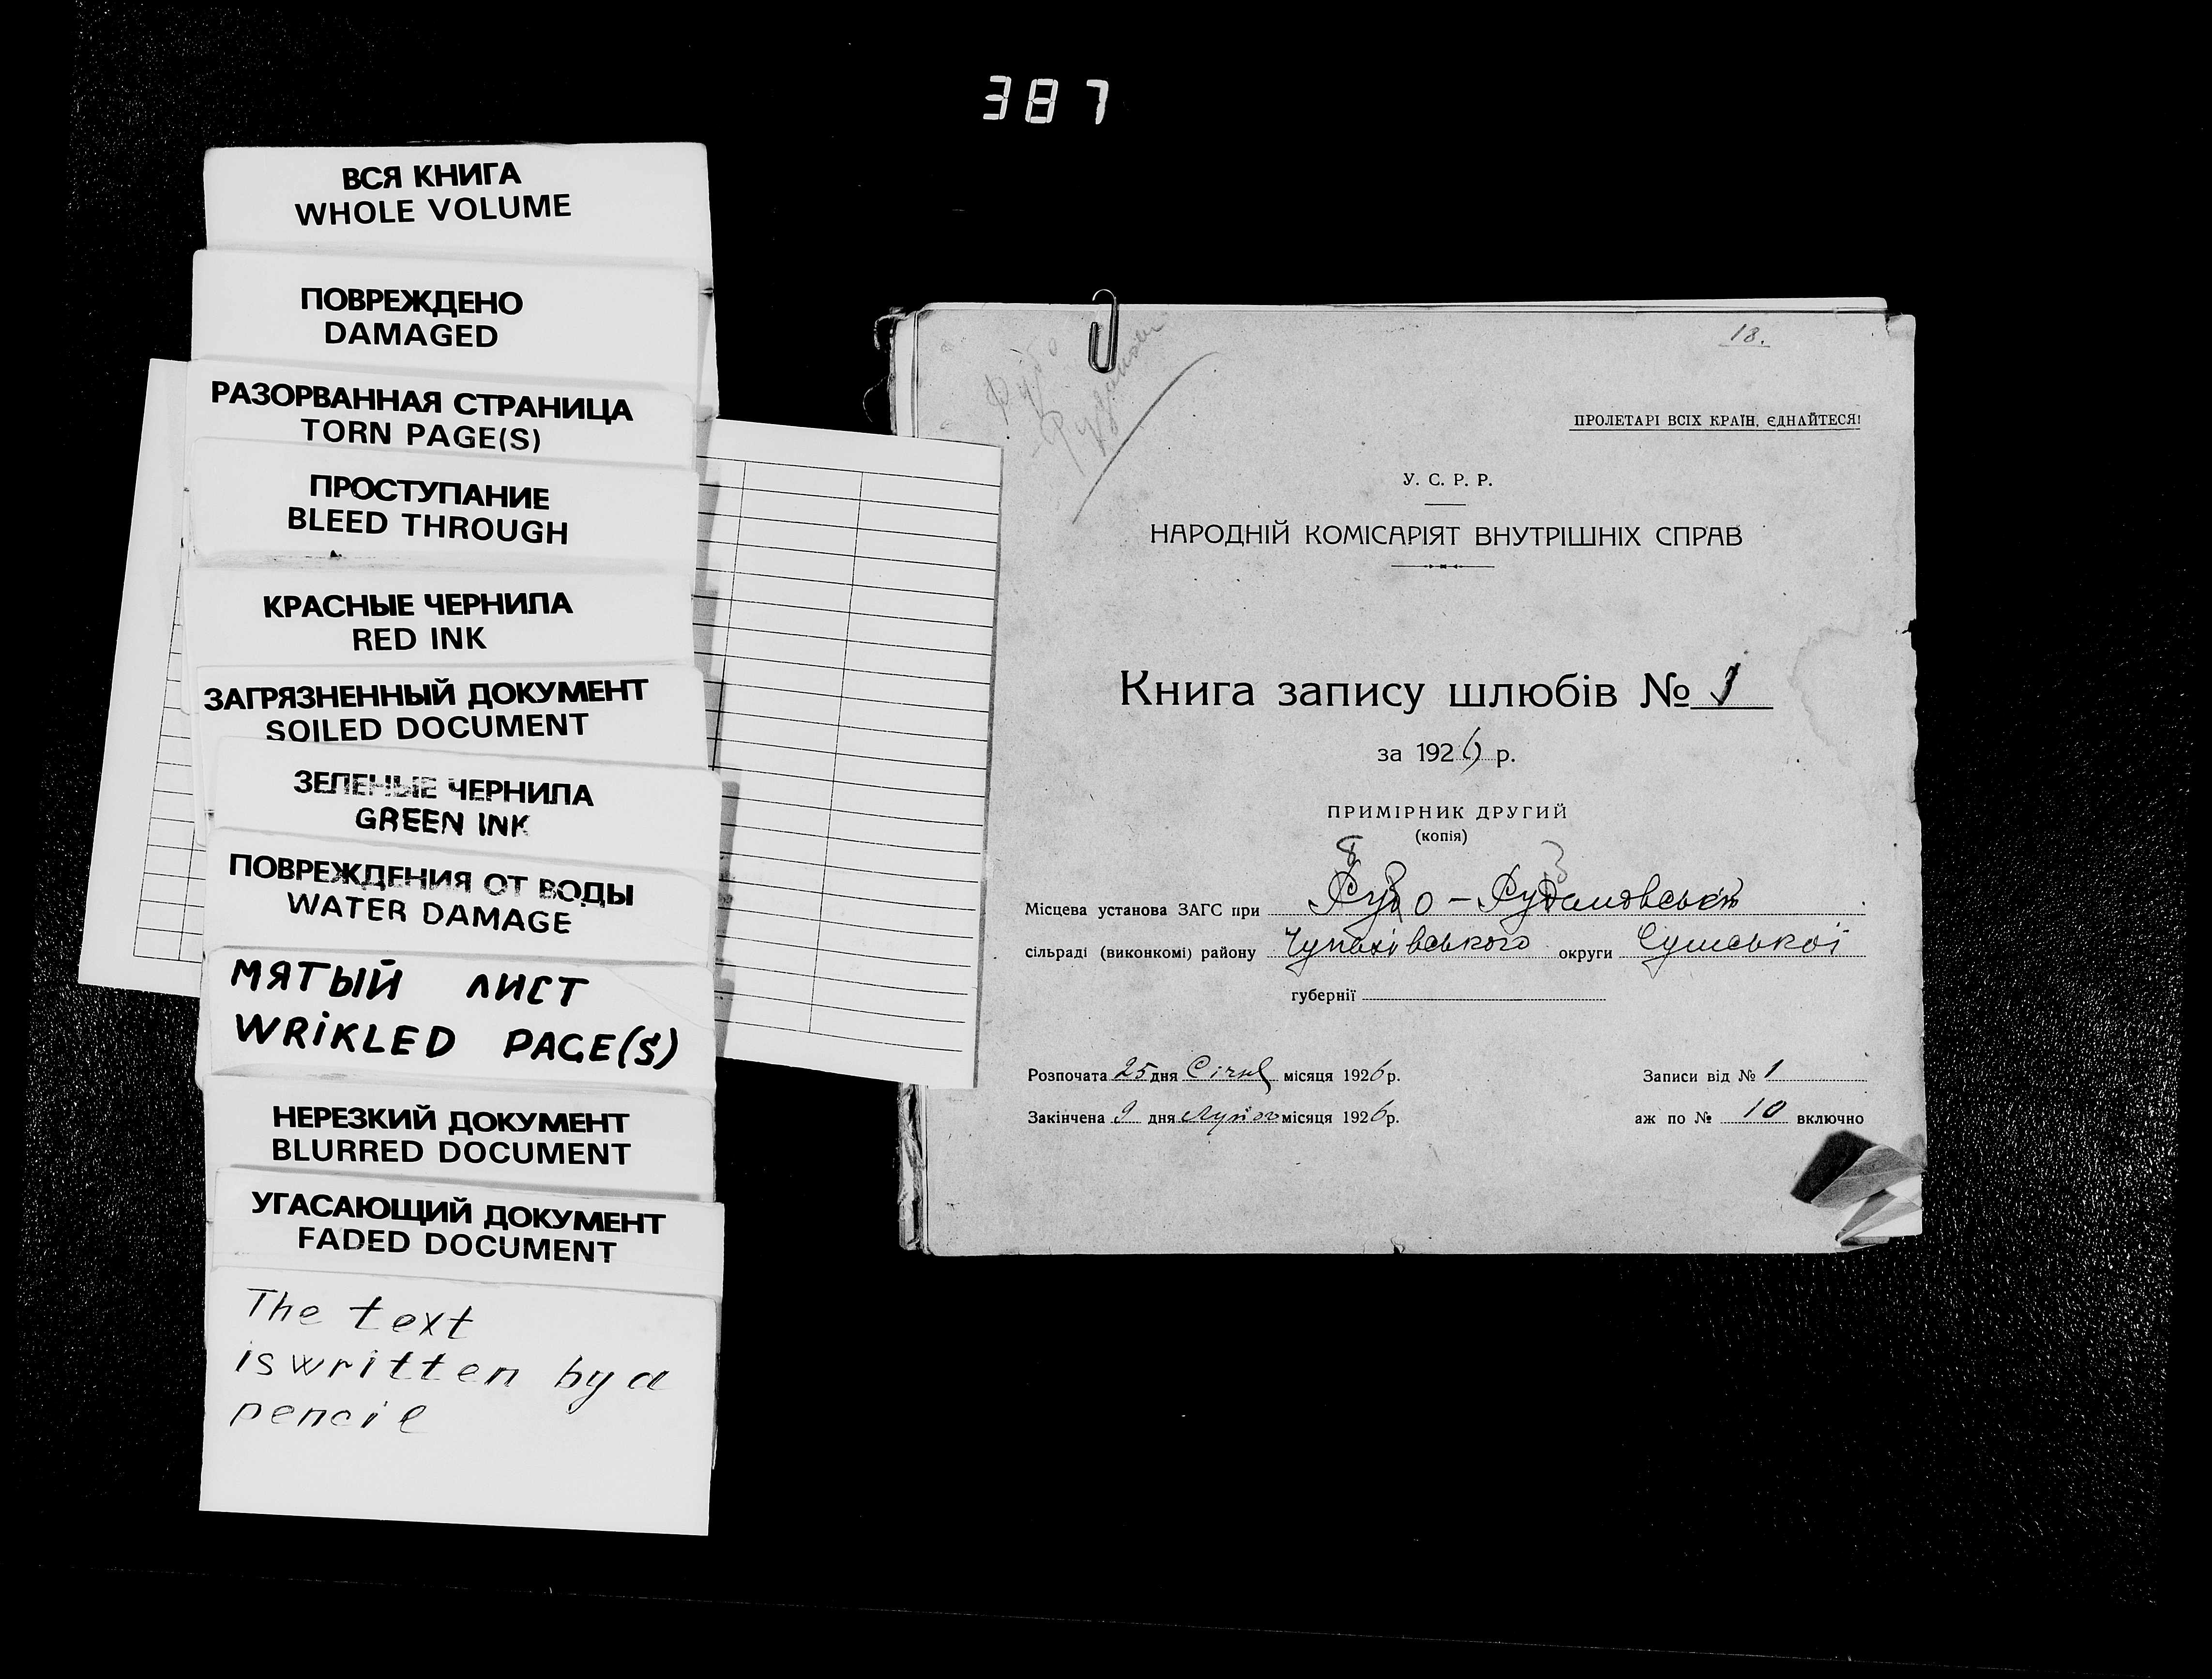 387
ВСЯ КНИГА
WHOLE VOLUME
ПОВРЕЖДЕНО
DAMAGED
РАЗОРВАННАЯ СТРАНИЦА
TORN PAGE(S)
ПРОСТУПАНИЕ
BLEED THROUGH
КРАСНЫЕ ЧЕРНИЛА
RED INK
ЗАГРЯЗНЕННЫЙ ДОКУМЕНТ
SOILED DOCUMENT
ЗЕЛЕНЫЕ ЧЕРНИЛА
GREEN INK
ПОВРЕЖДЕНИЯ ОТ ВОДЫ
WATER DAMAGE
МЯТЫЙ ЛИСТ
WRIKLED PAGE(S)
НЕРЕЗКИЙ ДОКУМЕНТ
BLURRED DOCUMENT
УГАСАЮЩИЙ ДОКУМЕНТ
FADED DOCUMENT
The text
is written by a
pencil
18.
ПРОЛЕТАРІ ВСІХ КРАЇН, ЄДНАЙТЕСЯ!
У. С. Р. Р.
НАРОДНІЙ КОМІСАРІЯТ ВНУТРІШНІХ СПРАВ
Книга запису шлюбів № 1
за 1926 р.
ПРИМІРНИК ДРУГИЙ
(копія)
Місцева установа ЗАГС при
сільраді (виконкомі) району Чупахівського округи Сумської
губернії
Розпочата 25 дня Січня місяця 1926 р. Записи від № 1
Закінчена 9 дня місяця 1926 р. аж по № 10 включно